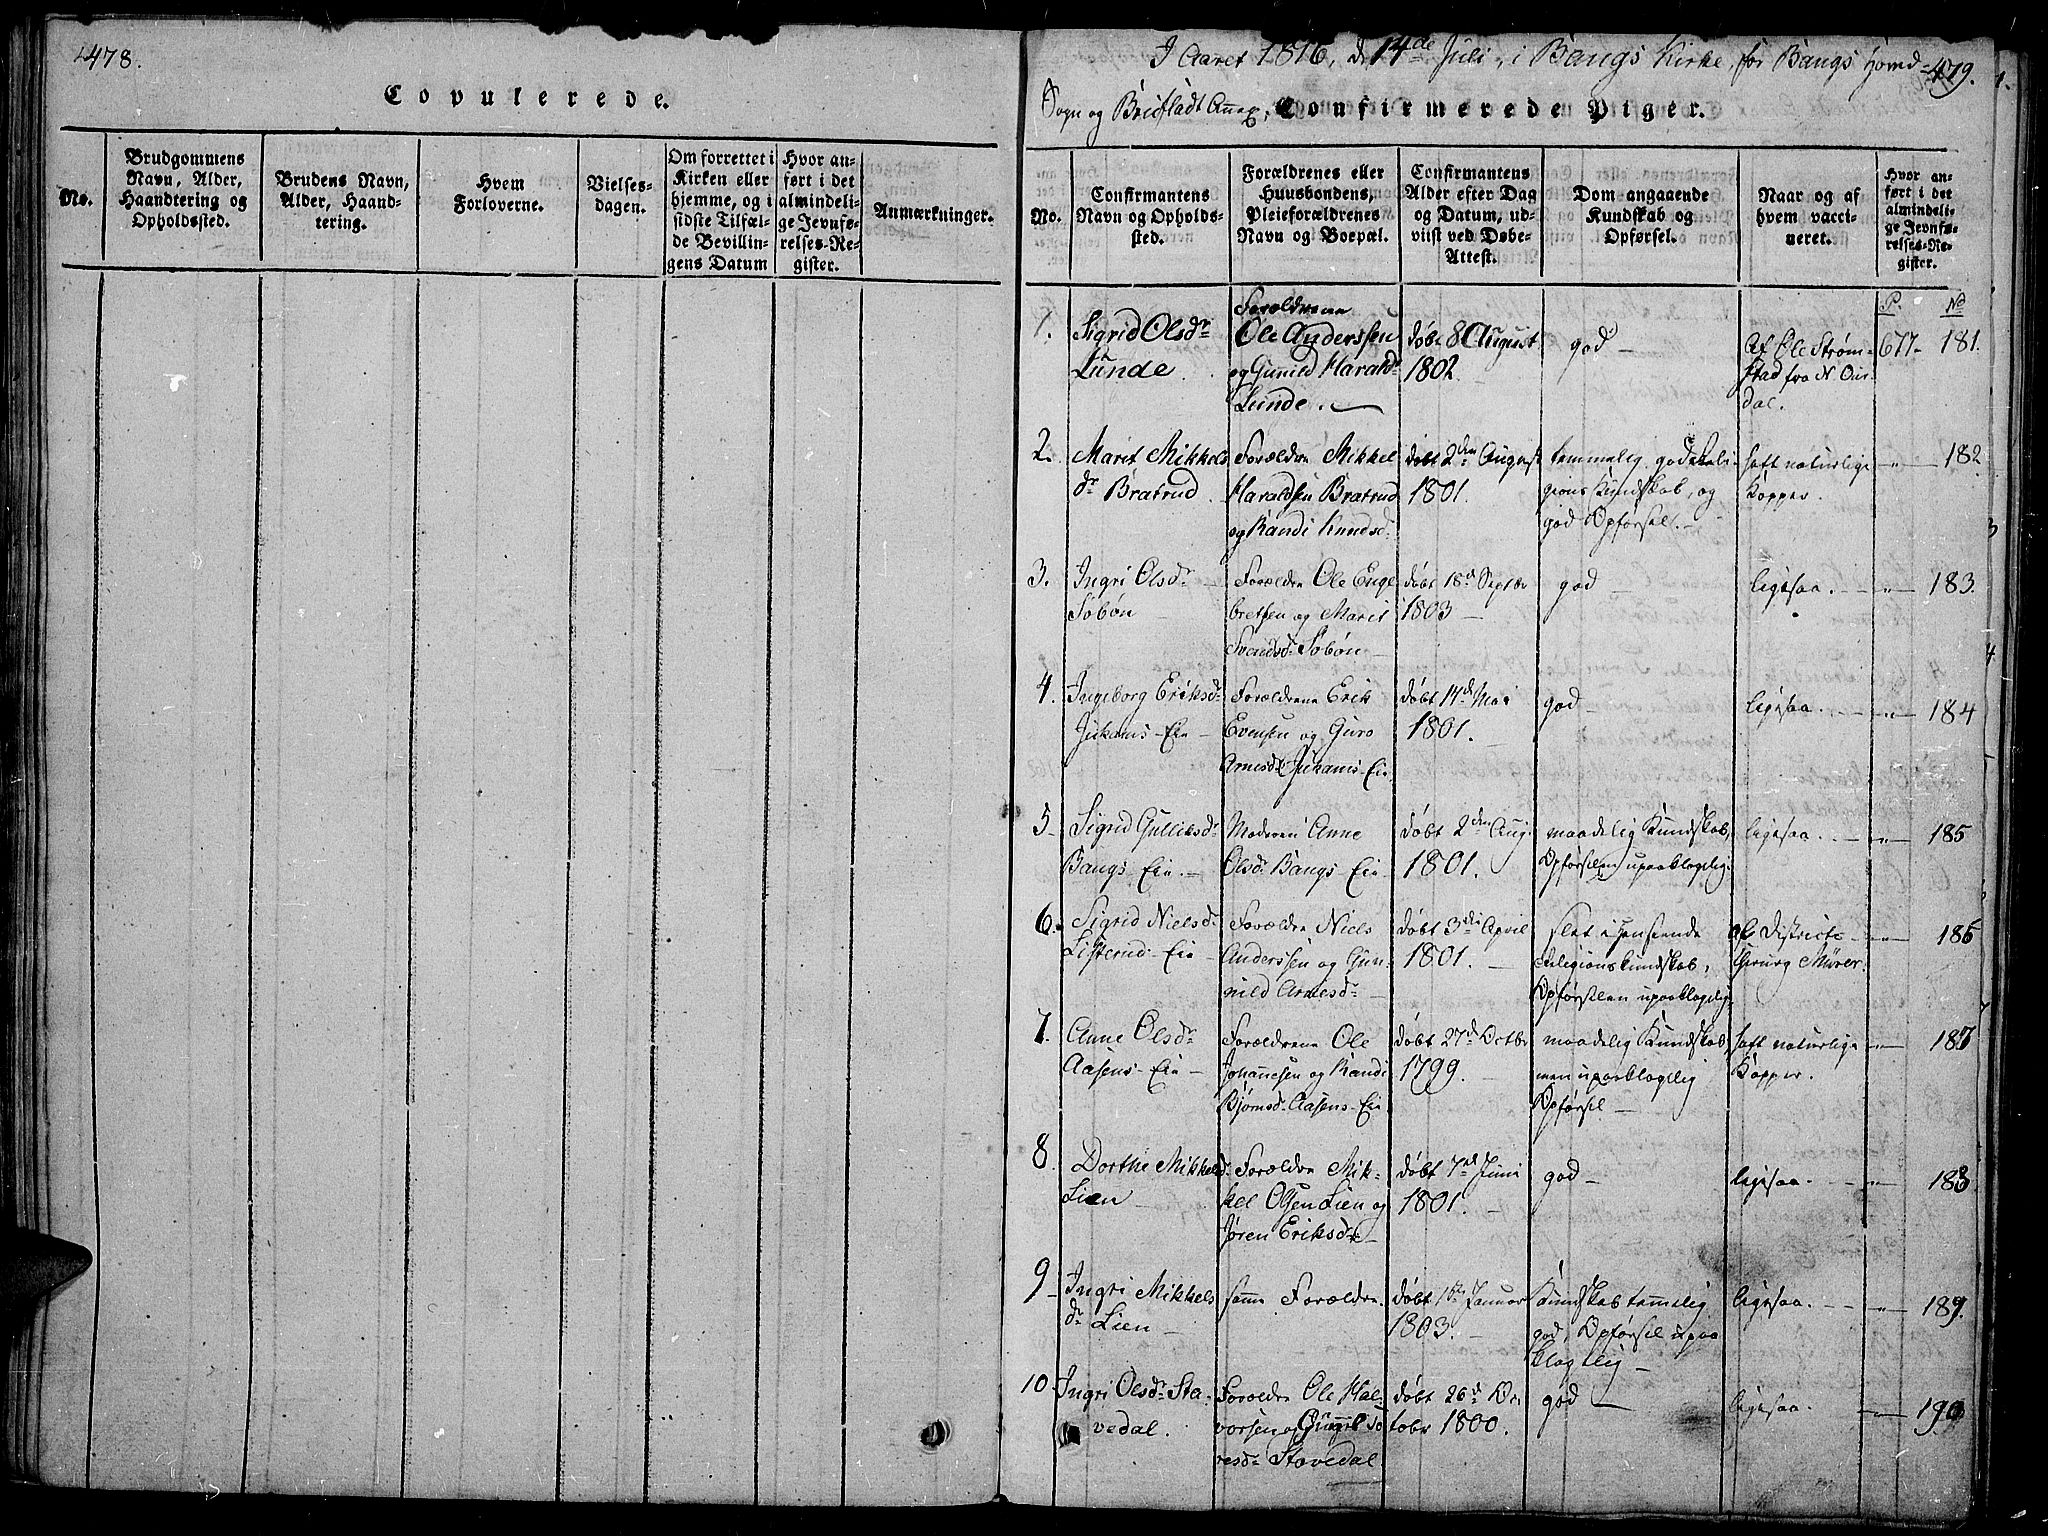 478.
Copulerede.
No.
Brudgommens
Navn, Alder,
Haandtering og
Opholdssted.
Brudens Navn,
Alder, Haand-
tering.
Hvem
Forloverne.
Vielses-
dagen.
Om forrettet i
Kirken eller
hjemme, og i
sidste Tilfæl-
de Bevillin-
gens Datum
Hvor an-
ført i det
almindeli-
ge Jevnfø-
relses-Re-
gister.
Anmærkninger.
I Aaret 1816, d. 14de Juli, i Bangs Kirke, for Bangs Hovd-
479.
Sogn og Brufladt Annex,
Confirmerede Piger.
No.
Confirmantens
Navn og Opholds-
sted.
Forældrenes eller
Huusbondens,
Pleieforældrenes
Navn og Boepæl.
Confirmantens
Alder efter Dag
og Datum, ud-
viist ved Døbe-
Attest.
Dom angaaende
Kundskab og
Opførsel.
Naar og af
hvem vacci-
neret.
Hvor an-
ført i det
almindeli-
ge Jevnfø-
relses-Re-
gister.
P. No
1. Sigrid Olsdr
Lunde.
Forældrene
Ole Anderssen
og Gunild Haralds-
Lunde.
døbt 8 August
1802.
god
Af Ole Strøm-
stad fra N. Our-
dal.
677- 181.
2. Marit Mikkels
dr Bratrud
Forældre Mikkel
Haraldsen Bratrud
og Randi Knudsd.
døbt 2den August
1801.
temmelig god Reli-
gions Kundskab, og
god Opførsel.
haft naturlige
Kopper.
" 182
3. Ingri Olsdr
Søbøn
Forældre Ole Enge
bretsen og Marit
Svendsd. Søbøn
døbt 18d Septbr
1803
god
ligesaa.
" 183.
4. Ingeborg Eriksd.
Jukams-Eie
Forældrene Erik
Evensen og Guro
Arnesd. Jukams-Eie
døbt 14d Mai
1801.
god
ligesaa.
" 184
5 Sigrid Gulliksdr
Bangs Eie.
Moderen Anne
Olsd. Bangs Eie
døbt 2den Aug.
1801.
maadelig Kundskab,
Opførselen upaaklagelig.
ligesaa.
" 185
6. Sigrid Nielsd.
Listerud-Eie
Forældre Niels
Anderssen og Gun-
nild Arnesdr
døbt 3die April
1801.
slet i Henseende
Religionskundskab,
Opførselen upaaklagelig
af Districts-
Chirurg Mürer.
" 186
7. Anne Olsdr
Aasens-Eie
Forældrene Ole
Johannesen og Randi
Bjørnsd. Aasens-Eie
døbt 27d Octbr
1799.
maadelig Kundskab,
men upaaklagelig
Opførsel
haft naturlige
Kopper.
" 187
8 Dorthe Mikkelsd.
Lien
Forældre Mik-
kel Olsen Lien og
Jøren Eriksdr
døbt 7d Juni
1801.
god
ligesaa.
" 188
9 Ingri Mikkels
dr Lien
samme Forældre.
døbt 1ste Januar
1803.
Kundskab temmelig
god, Opførsel upaa
klagelig
ligesaa.
" 189.
10 Ingri Olsdr Sta-
vedal.
Forældre Ole Hal-
vorsen og Gunnild To
resdr Stavedal.
døbt 26d Oc-
tobr 1800.
god
ligesaa.
" 190